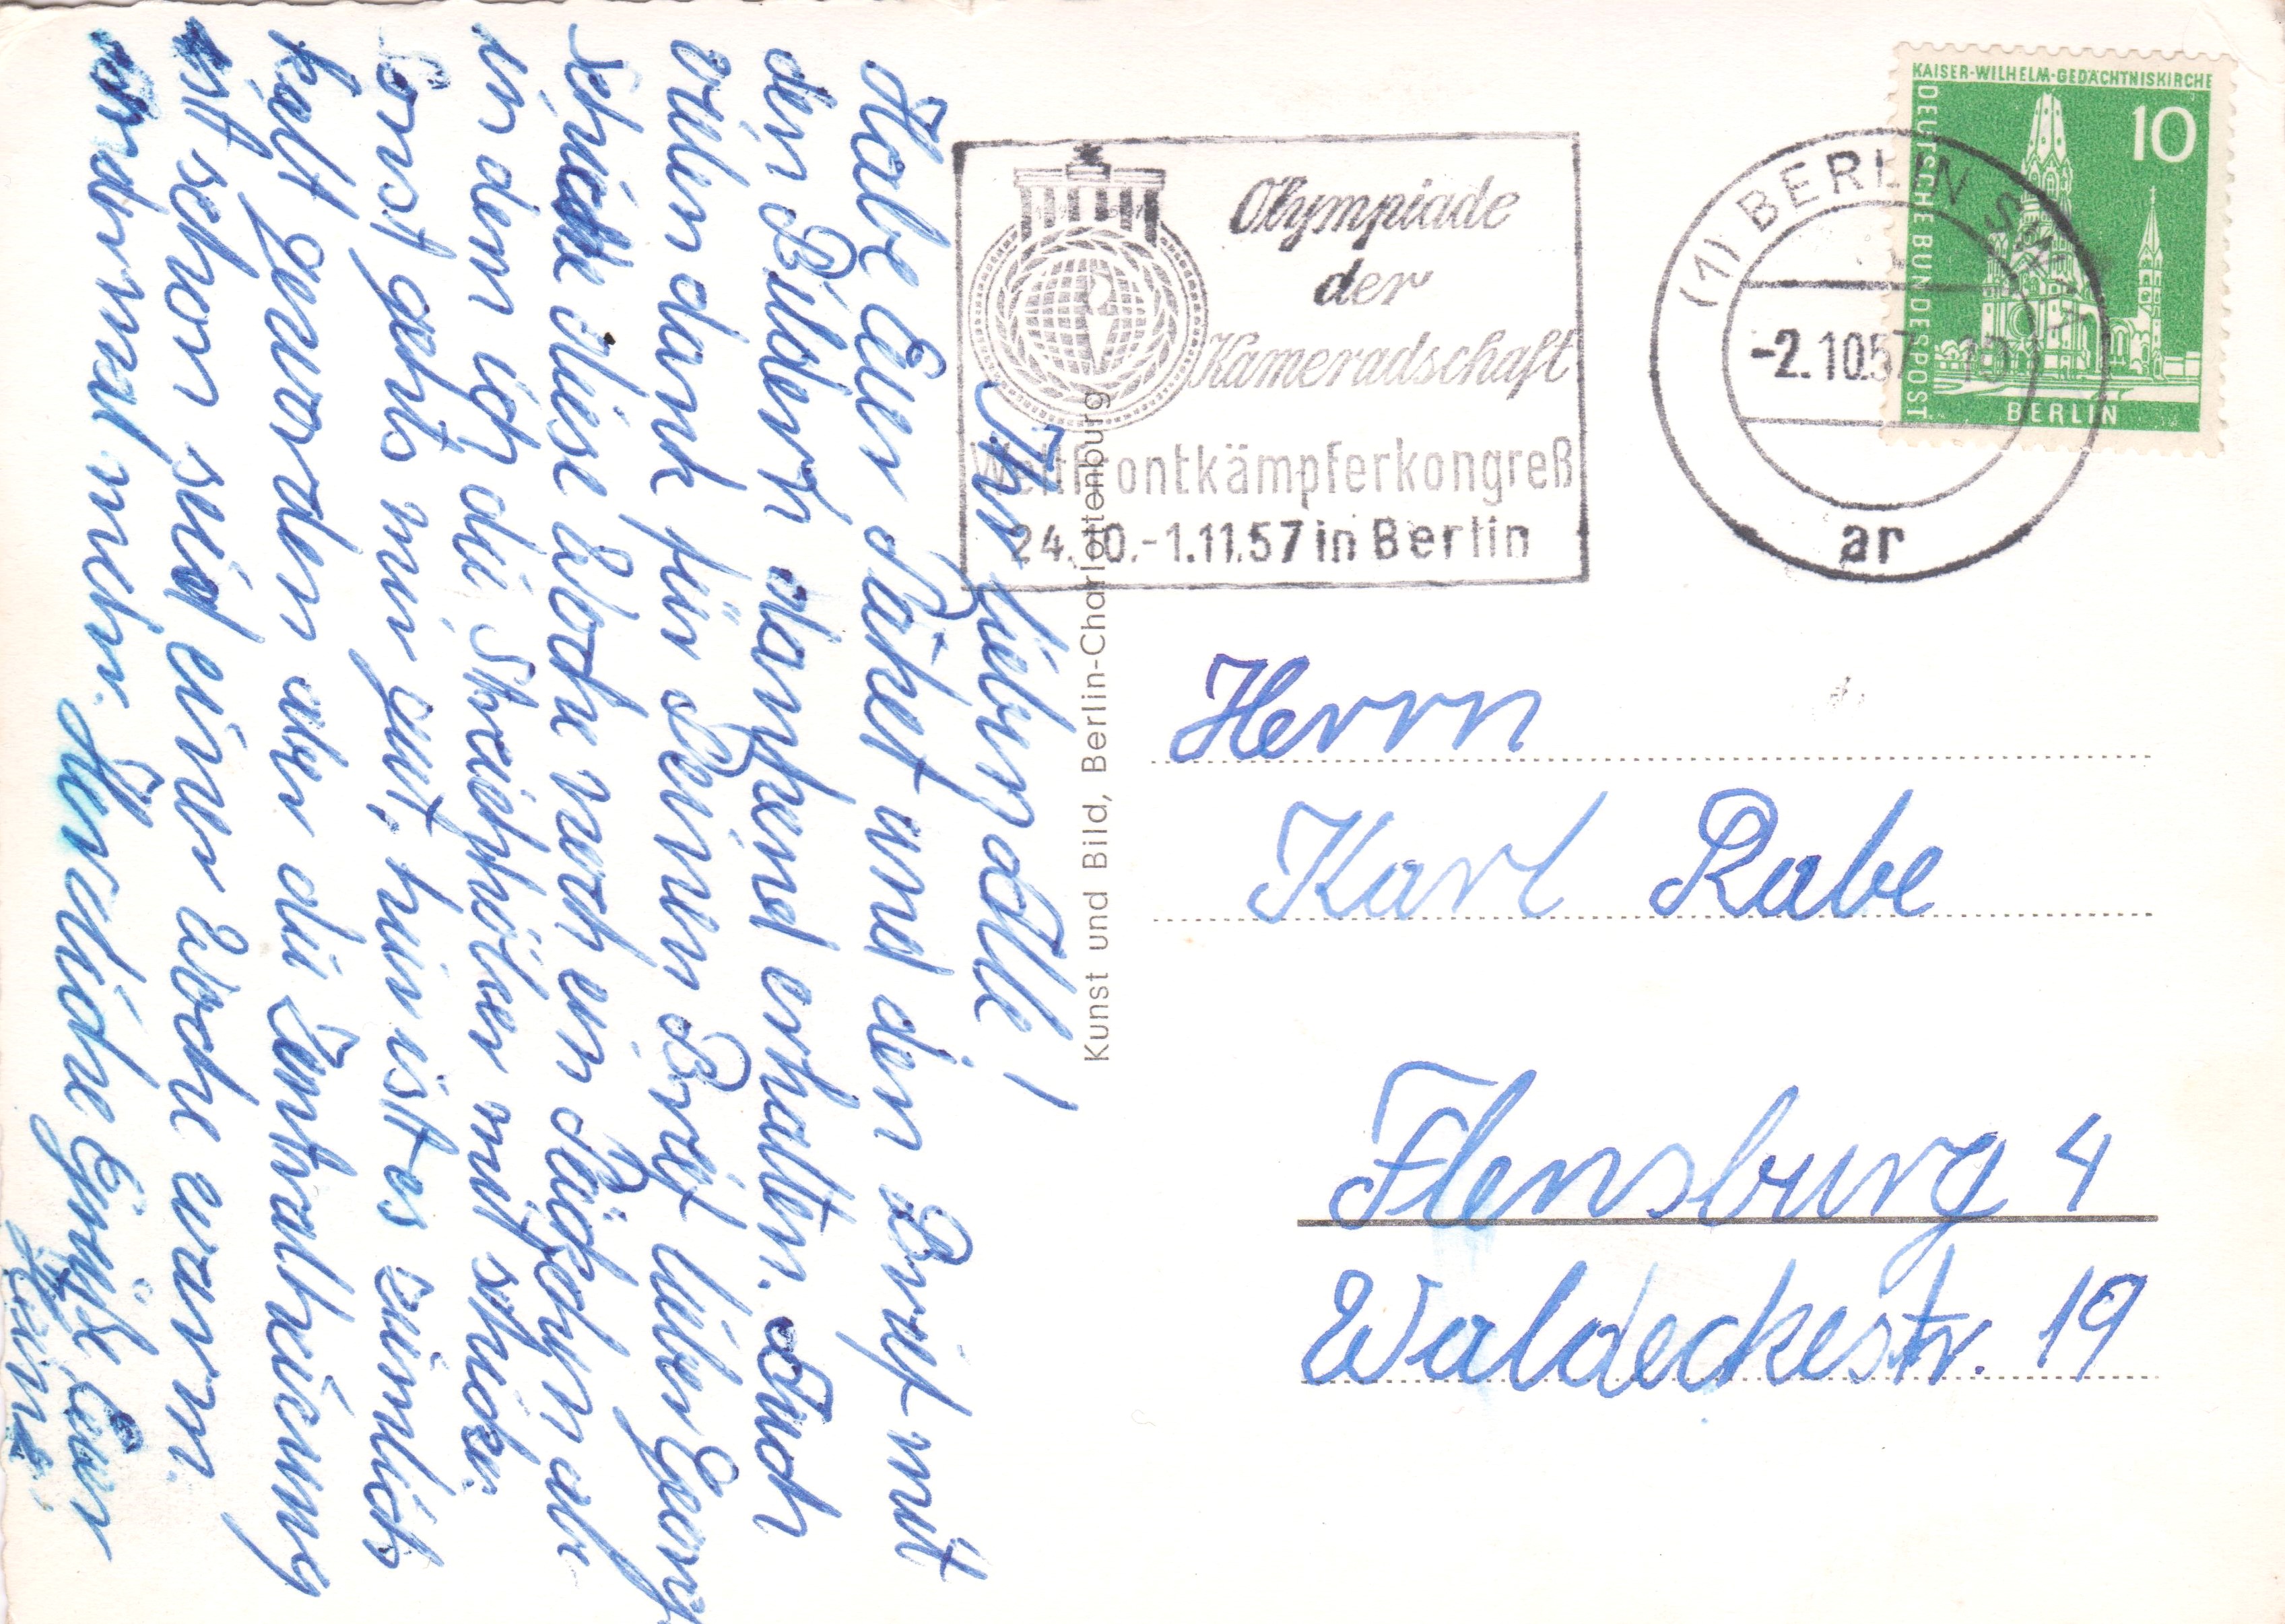 Ihr lieben alle!
Habe Euer Paket und den Brief mit
den Bildern dankend erhalten. Auch
vielen dank für Deinen Brief lieber Georg
schicke diese Woche noch ein Päckchen ab
in dem ich die Streichhölzer mit schicke.
Sonst gehts mir gut, hier ist es ziemlich
kalt geworden aber die Zentralheizung
ist schon seid einer Woche warm.
mehr. Herzliche Grüße Euer
Heinz.
Kunst und Bild, Berlin-Charlottenburg
Olympiade
der
Kameradschaft
Weltfrontkämpferkongreß
24.10.-1.11.57 in Berlin
(1) BERLIN SW
-2.10.57
ar
KAISER-WILHELM-GEDÄCHTNISKIRCHE
DEUTSCHE BUNDESPOST
10
BERLIN
Herrn
Karl Rabe
Flensburg 4
Waldeckestr. 19